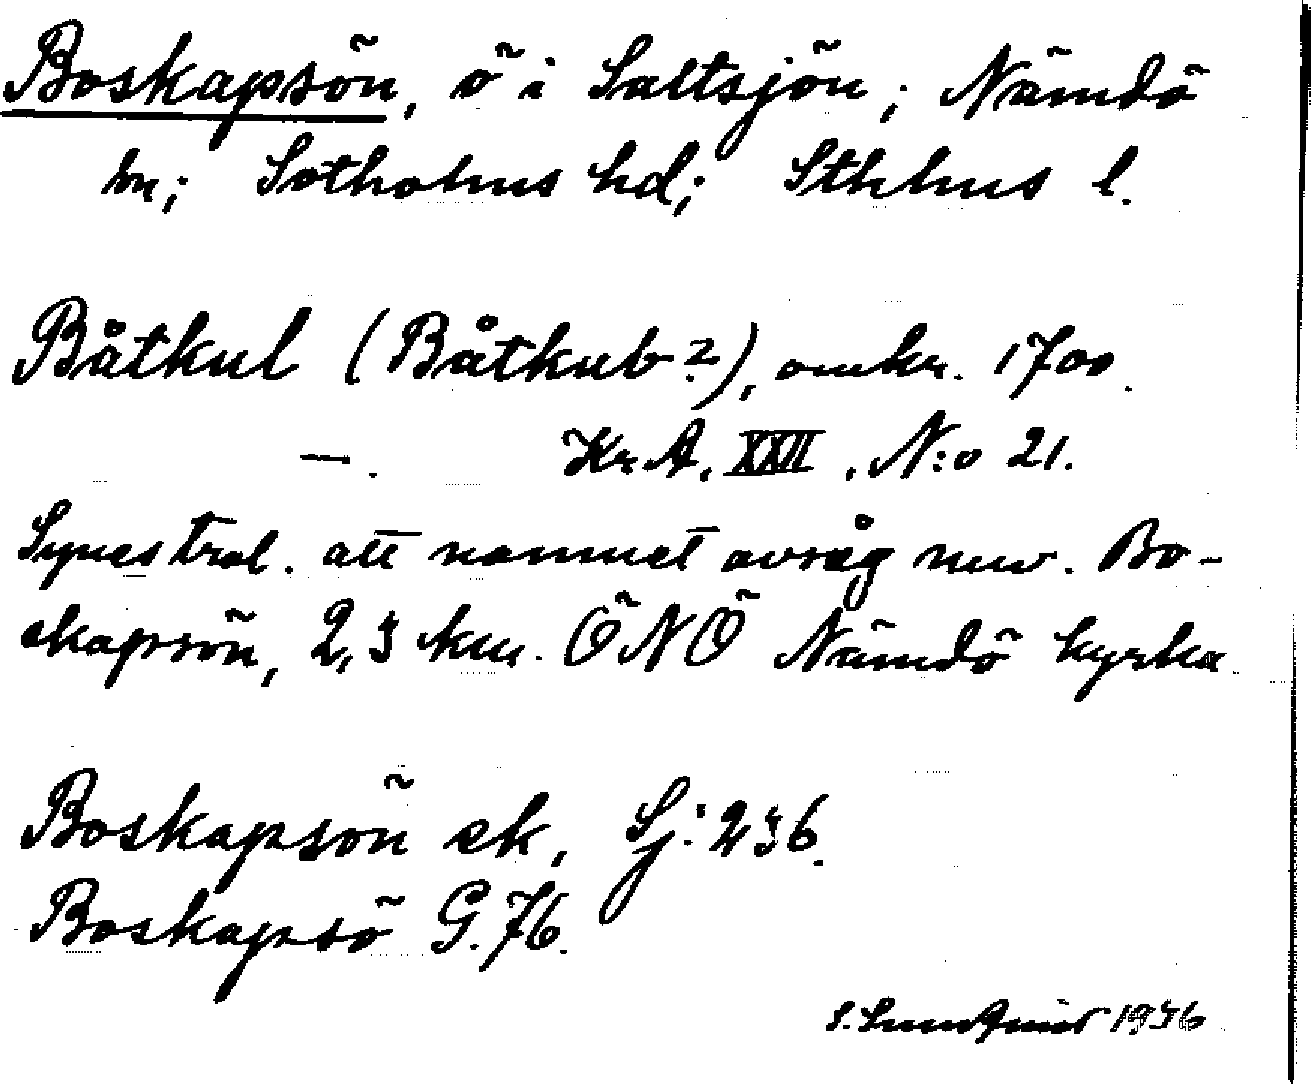 Boskapsön, ö i Saltsjön; Nämdö
sn; Sotholms hd; Sthlms l.
Båtkul (Båtkub?), omkr. 1700.
—. Kr. A. XXII, N:o 21.
Synes trol. att namnet avsåg nuv. Bo-
skapsön, 2,3 km. ÖNÖ Nämdö kyrka
Boskapsön ek, Sj: 236.
Boskapsö G. 76.
S. 1936